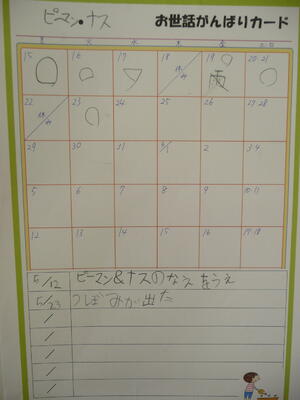 ピーマン・ナス
お世話がんばりカード
月 火 水 木 金 土・日
15 16 17 18 19 20・21
休み 雨
22 23 24 25 26 27・28
休み
29 30 31 6/1 2 3・4
5 6 7 8 9 10・11
12 13 14 15 16 17・18
5/12 ピーマン&ナスのなえをうえ
5/23 つぼみが出た